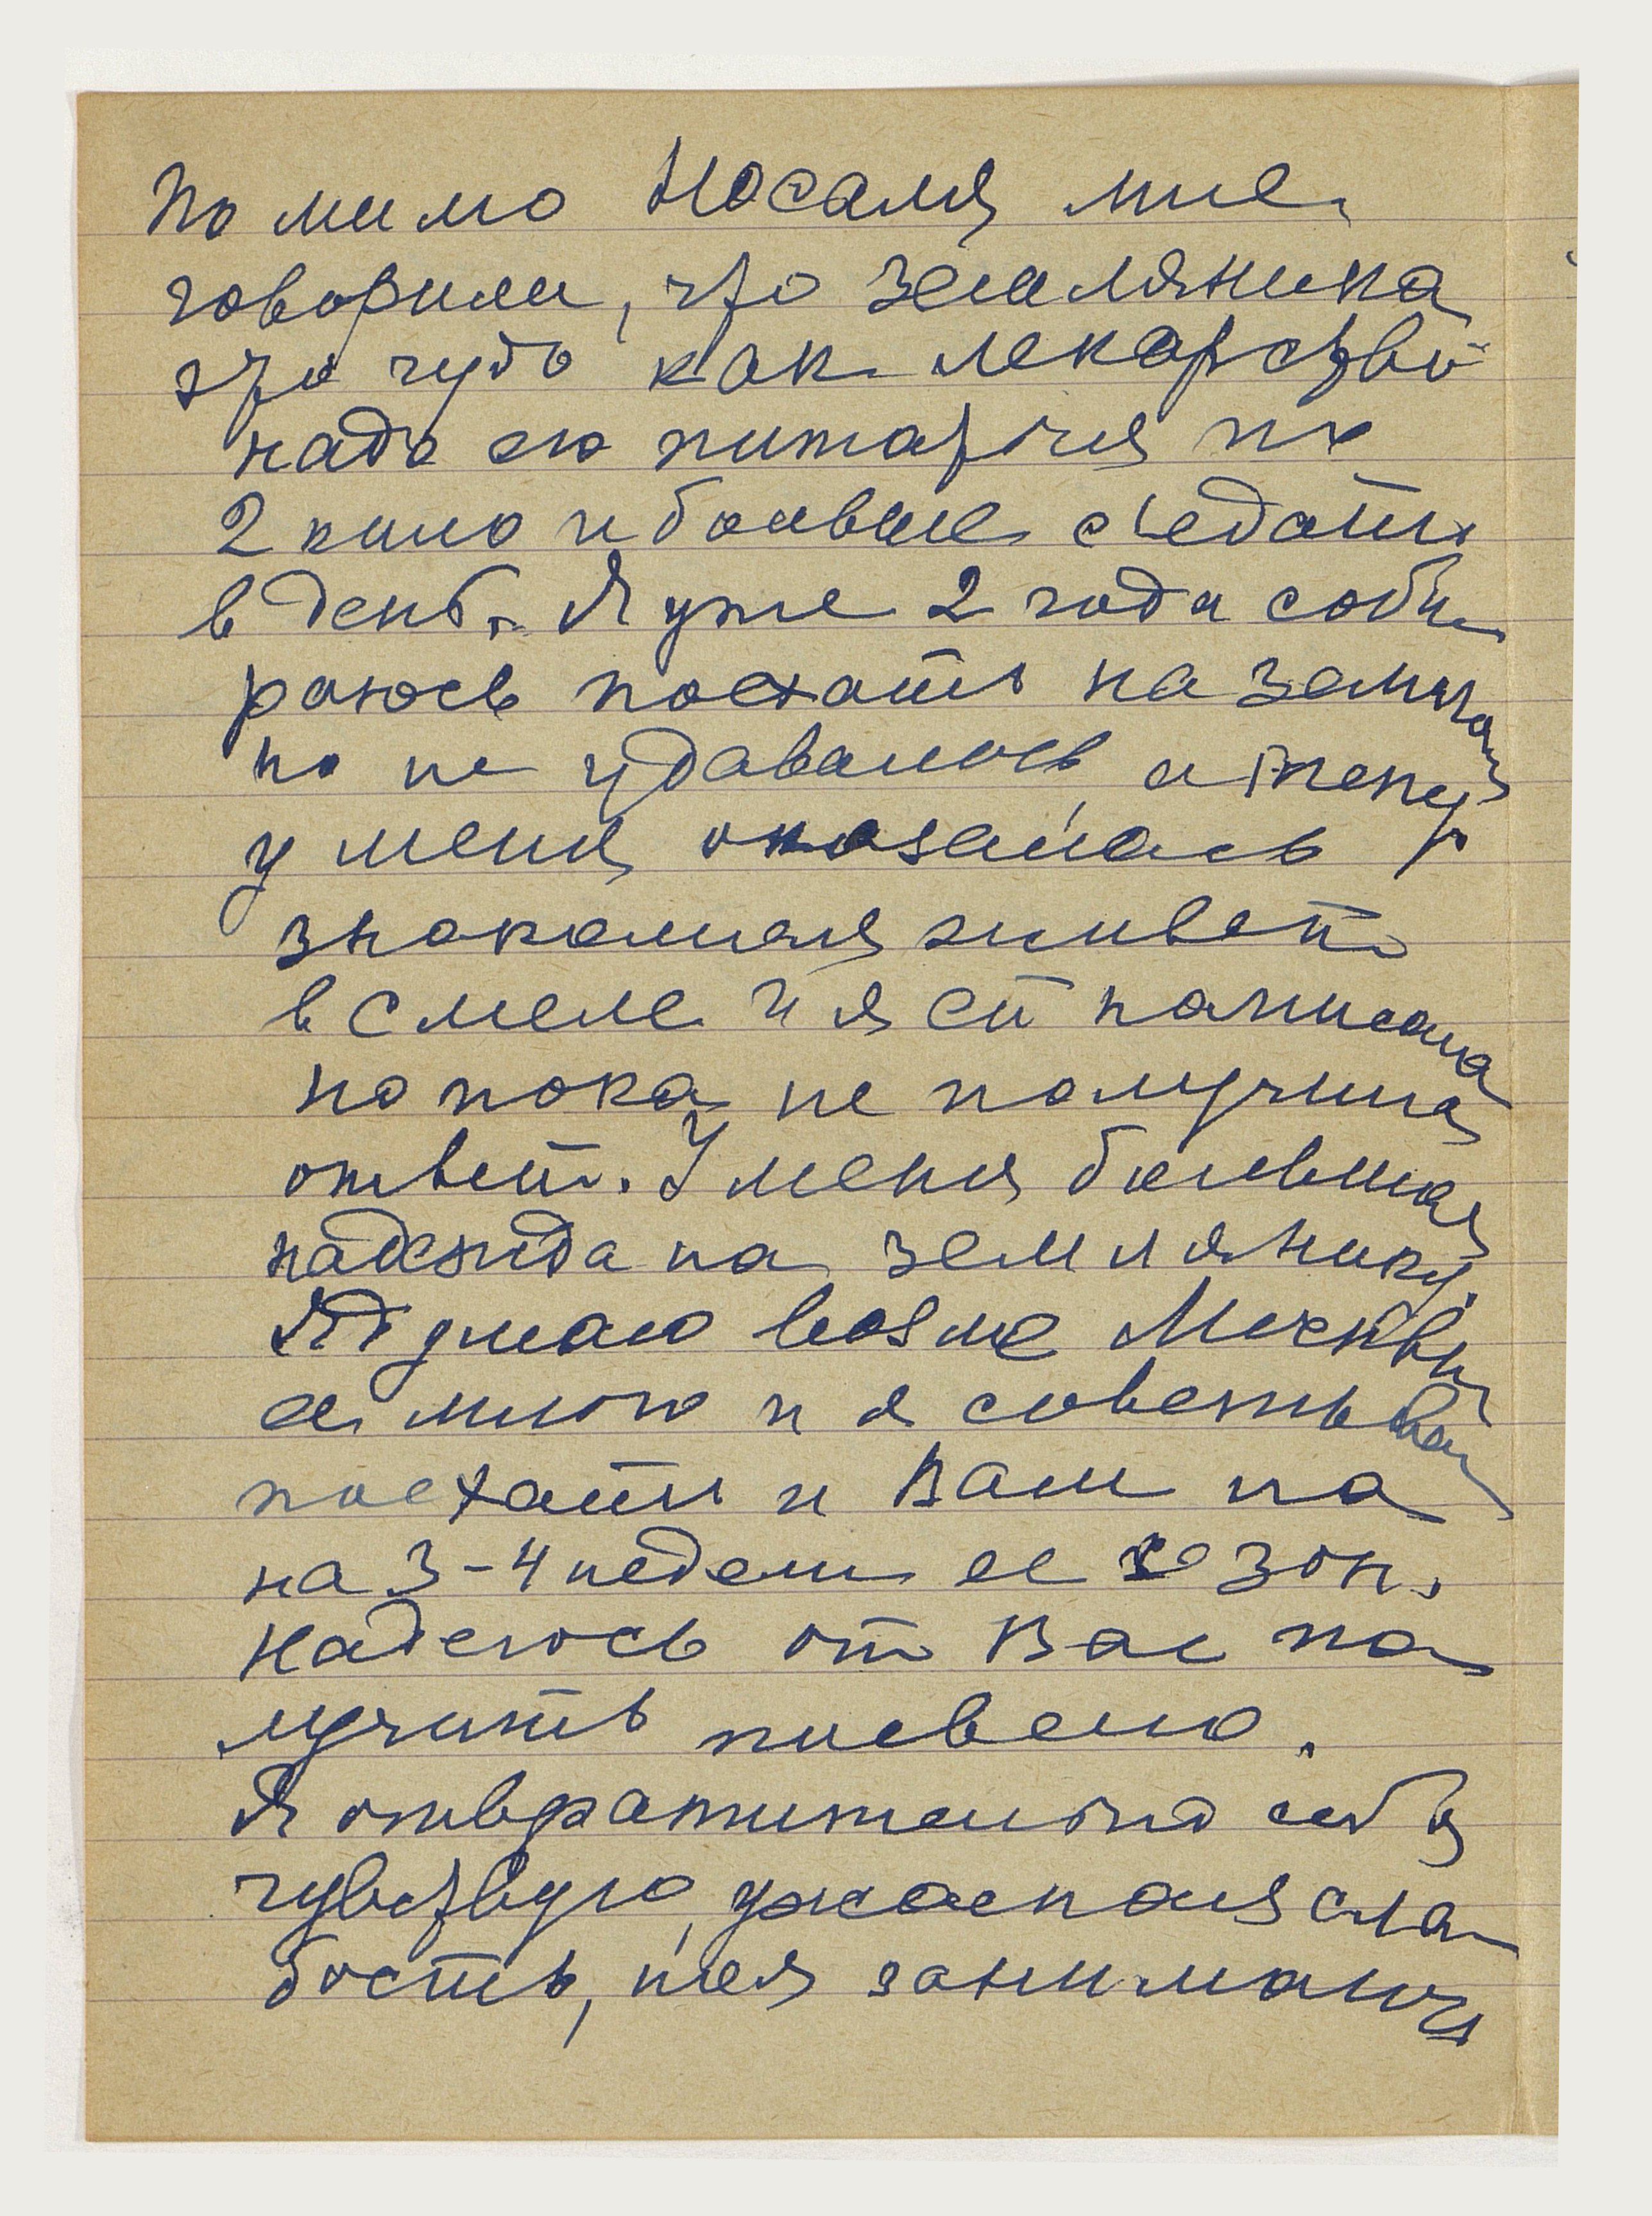 Помимо Носаля мне
говорили, что земляника
это чудо как лекарство
надо ею питаться по
2 кило и больше съедать
в день. Я уже 2 года соби
раюсь поехать на
но не удавалось, а тепер
у меня оказалась
знакомая живет
в Смеле и я ей написала
но пока не получила
ответ. У меня большая
надежда на землянику.
Я думаю возле Москвы
ее много и я советы вам
поехать и Вам на
на 3-4 недели ее сезон.
Надеюсь от Вас по
лучить письмо.
Я отвратительно себя
чувствую, ужасная сла
бость, но я занимаюсь